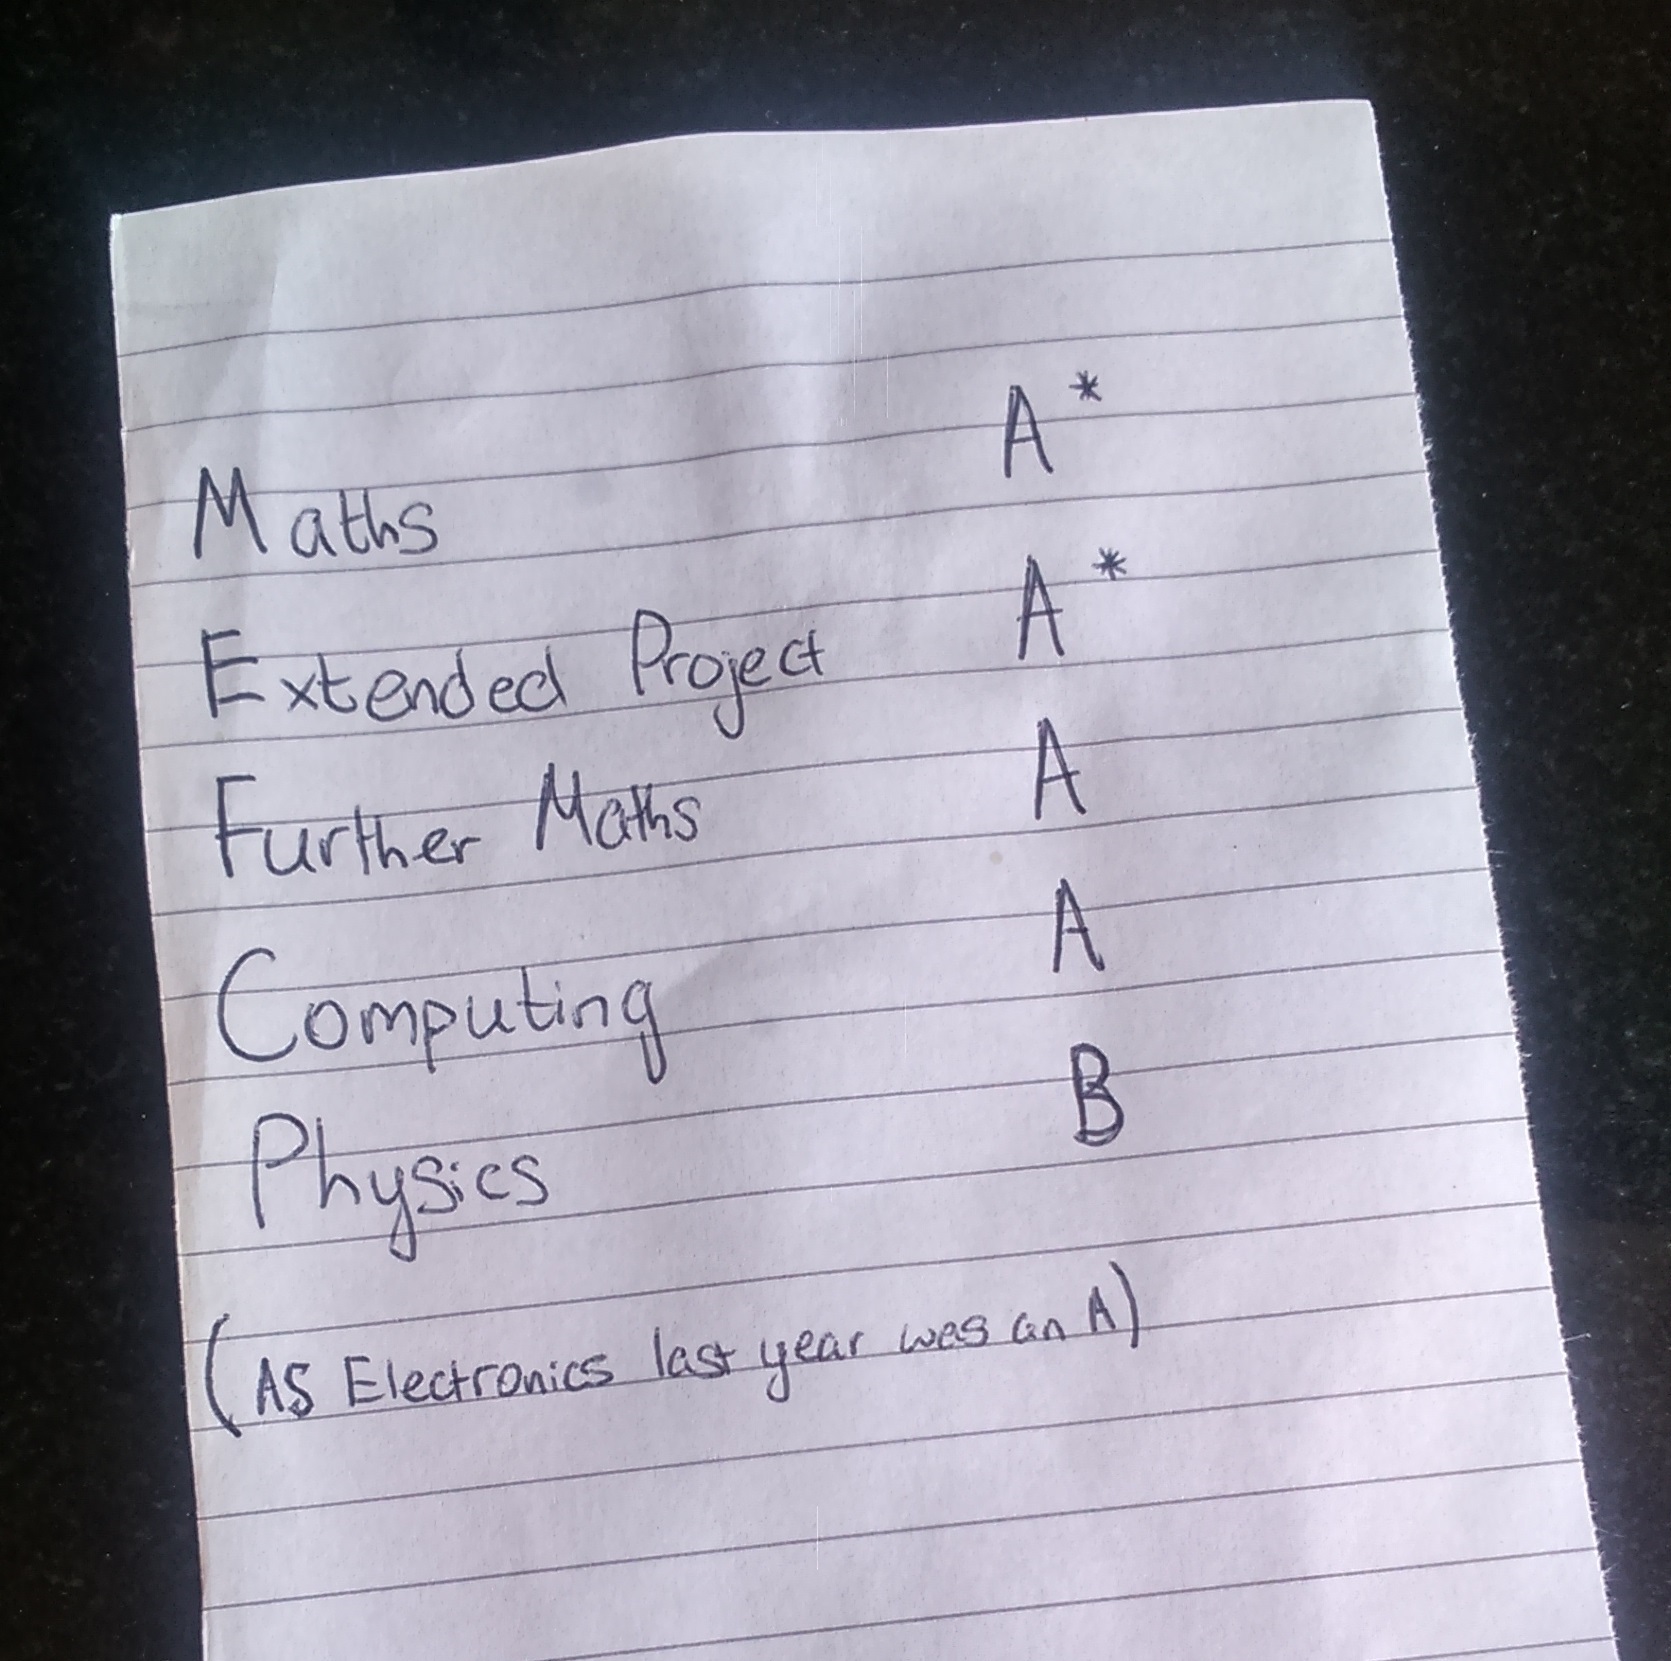 Maths A*
Extended Project A*
Further Maths A
Computing A
Physics B
(AS Electronics last year was an A)